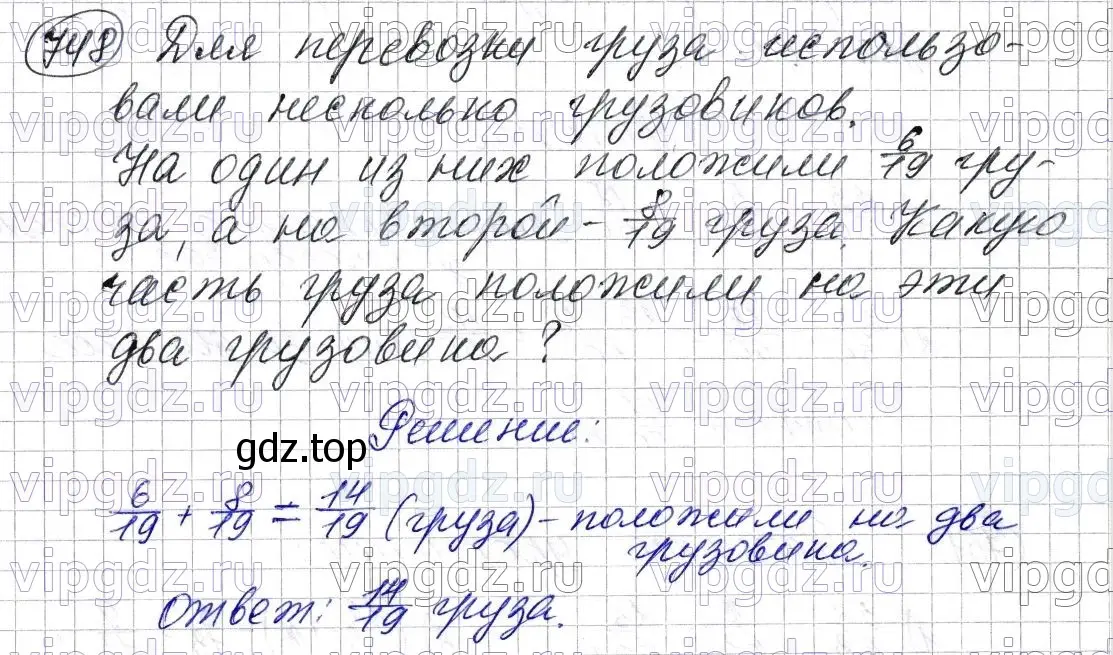 748 Для перевозки груза использо-
вали несколько грузовиков.
На один из них положили 6/19 гру-
за, а на второй - 8/19 груза. Какую
часть груза положили на эти
два грузовика?
Решение:
gdz.top
6/19 + 8/19 = 14/19 (груза) - положили на два
грузовика.
Ответ: 14/19 груза.
vipgdz.ru